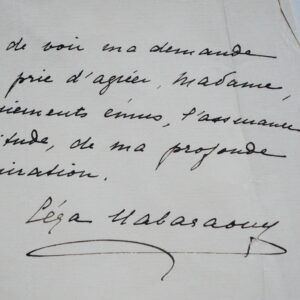 de voir ma demande
prie d'agréer, Madame,
iements émus, l'assurance
itude, de ma profonde
iration.
Céza Nabaraouy